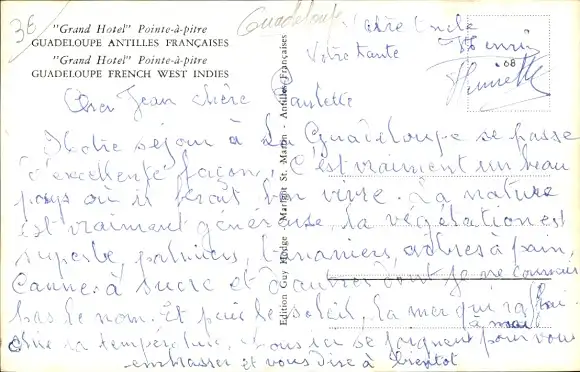 3€
Guadeloupe
"Grand Hotel" Pointe-à-pitre
GUADELOUPE ANTILLES FRANÇAISES
"Grand Hotel" Pointe-à-pitre
GUADELOUPE FRENCH WEST INDIES
Edition Guy Hodge / Marigot St. Martin - Antilles Françaises
08
Cher Jean chère Paulette
Notre séjour à La Guadeloupe se passe
d'excellente façon, C'est vraiment un beau
pays où il serait bon vivre. La nature
est vraiment généreuse, la végétation est
superbe, palmiers, bananiers, arbres à pain,
Canne à sucre et d'autres dont je ne connais
pas le nom. Et puis le soleil, la mer qui rafraî
chit la température,
se joignent pour vous
embrasser et vous dire à bientôt
Votre Oncle
Henri
Votre tante
Henriette